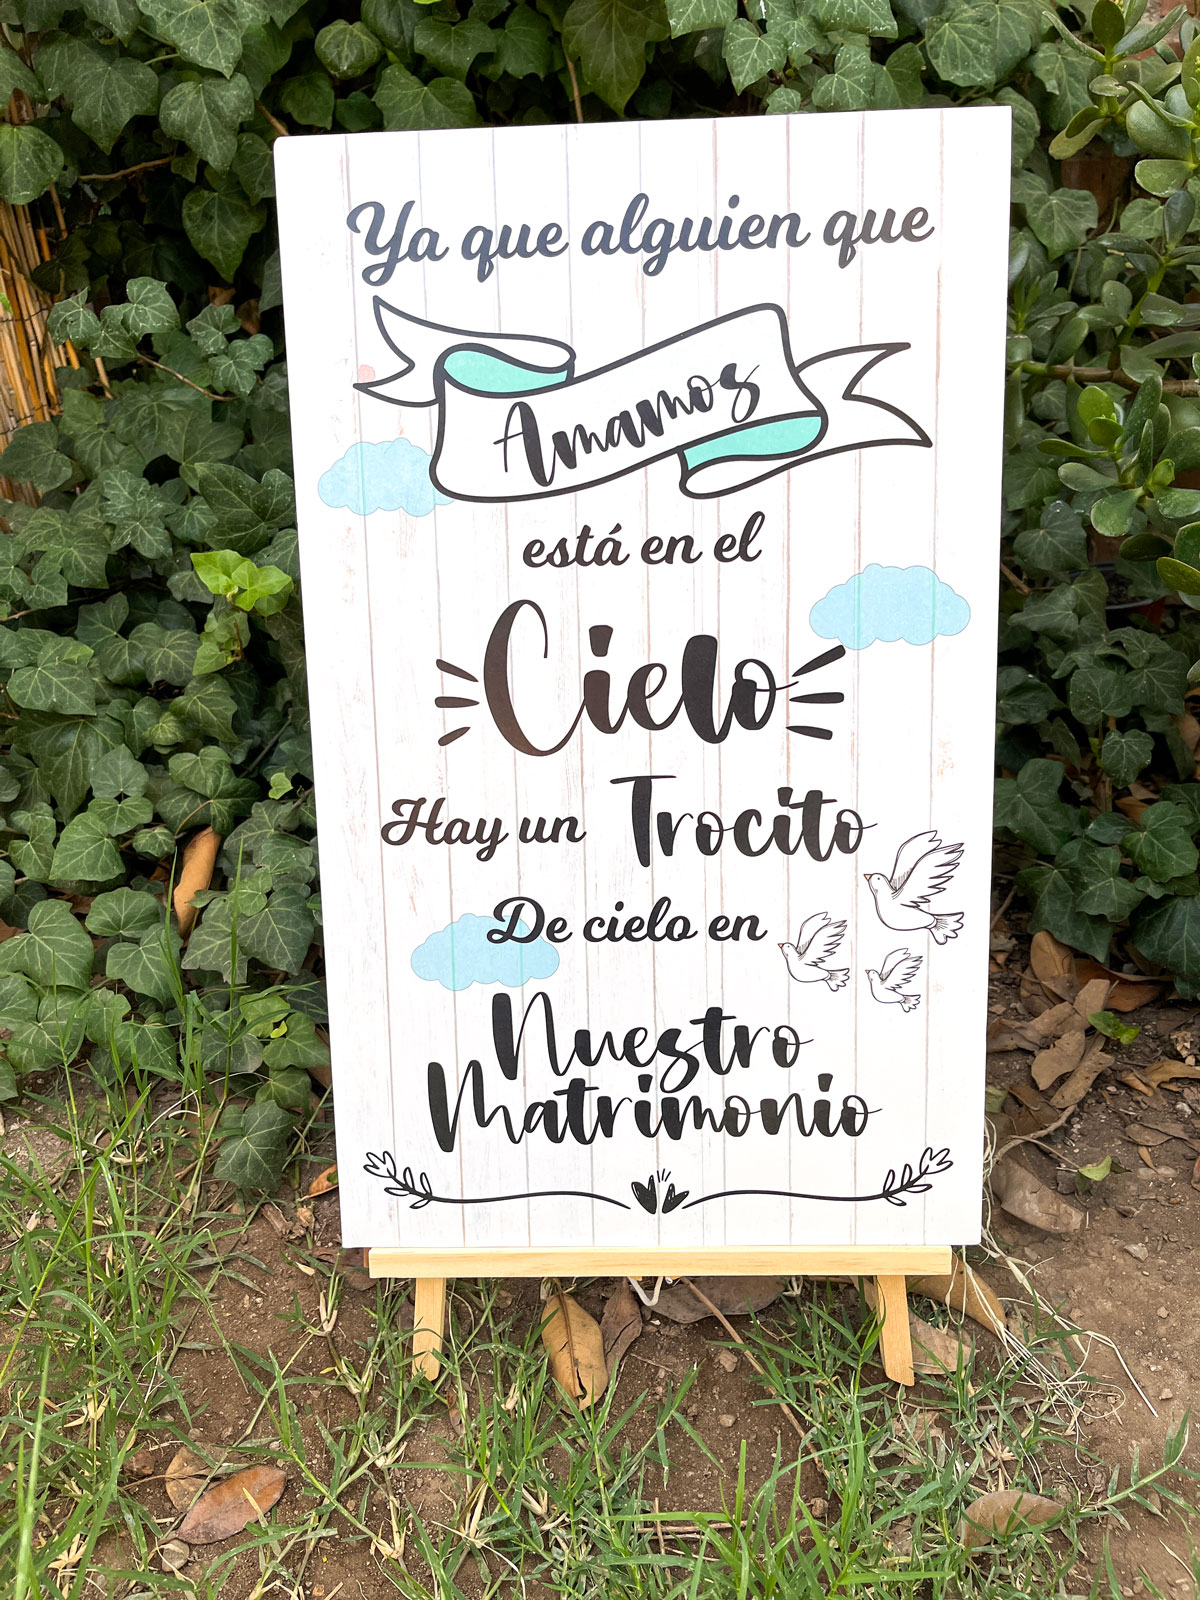 Ya que alguien que
Amamos
está en el
Cielo
Hay un Trocito
De cielo en
Nuestro
Matrimonio